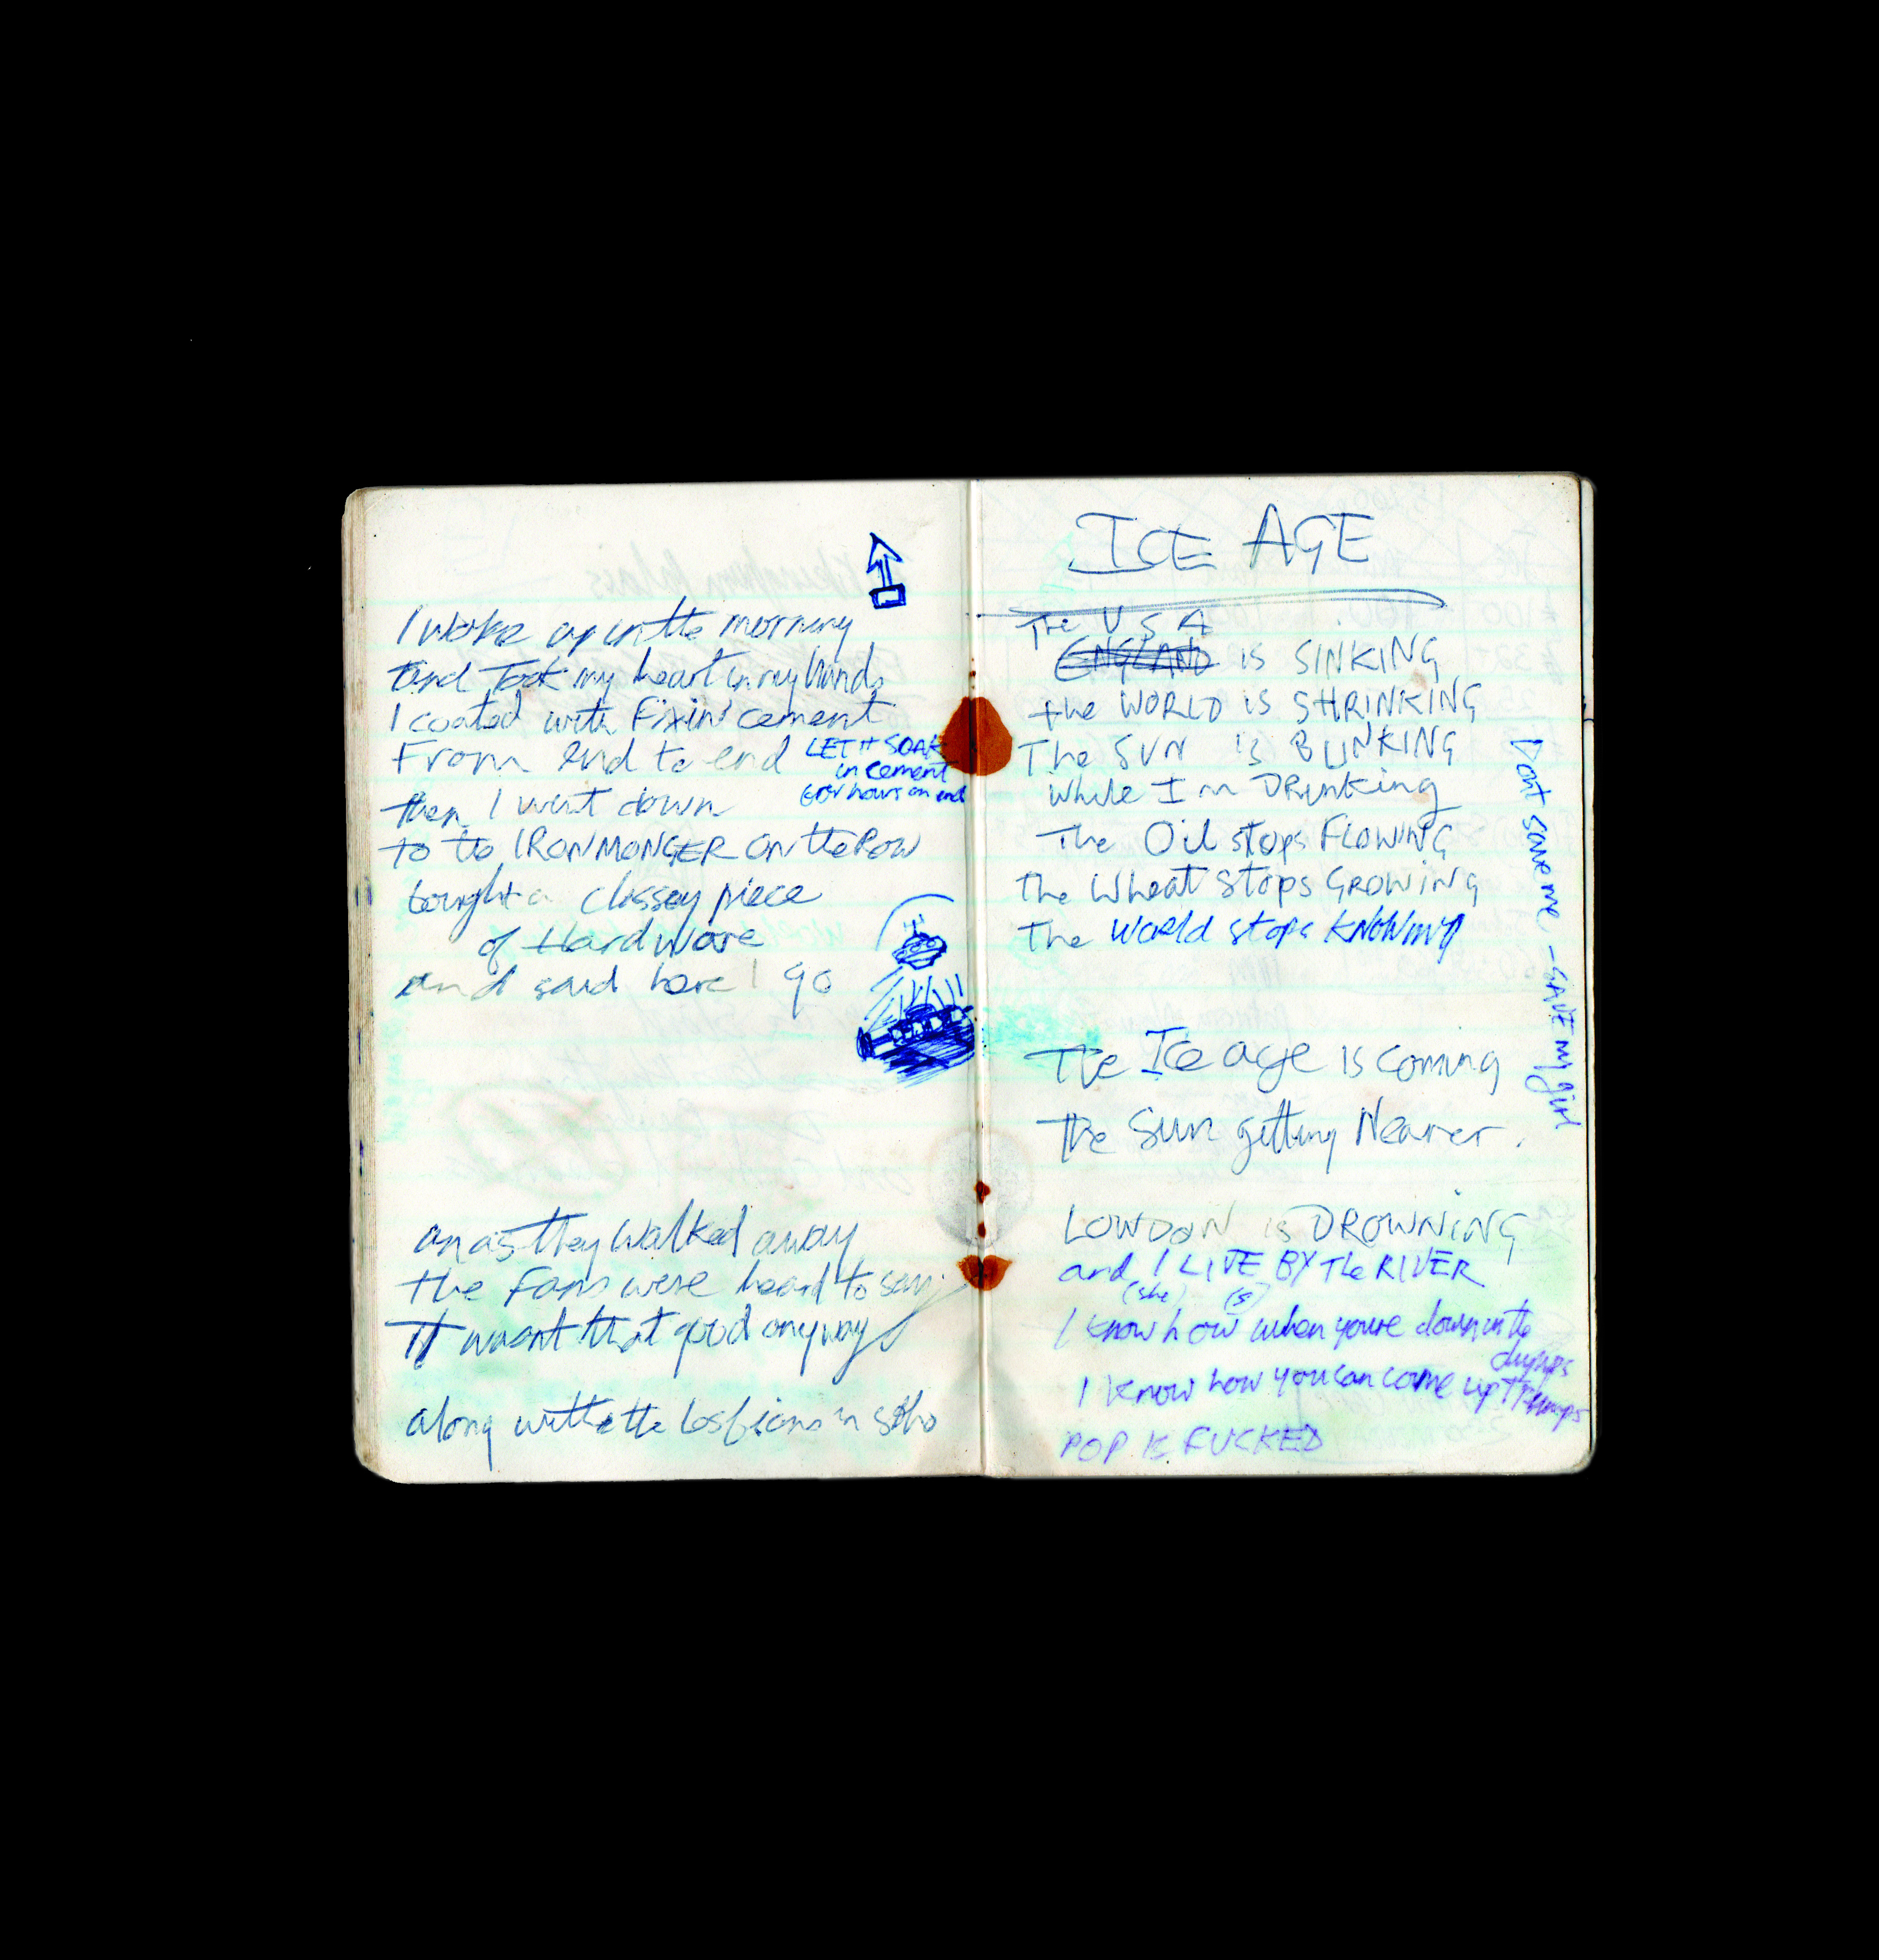 I woke up in the morning
and Took my heart in my hands
I coated with Fixin' cement
From end to end
LET IT SOAK
in cement
for hours on end
then I went down
to the IRONMONGER on the Row
bought a classey piece
of Hardware
and said here I go
an as they walked away
the Fans were heard to say
It wasnt that good anyway
along with the Lesbians in soho
ICE AGE
The USA
ENGLAND IS SINKING
the WORLD IS SHRINKING
The SUN IS BLINKING
while I'm DRinking
The Oil stops FLOWING
the Wheat Stops GROWING
The World stops KNOWING
Dont save me - SAVE my girl
The Ice age is coming
the Sun getting Nearer.
LONDON is DROWNING
and I LIVE BY The RIVER
(she) (s)
I know how when youre down in the
dumps
I know how you can come up Trumps
POP IS FUCKED